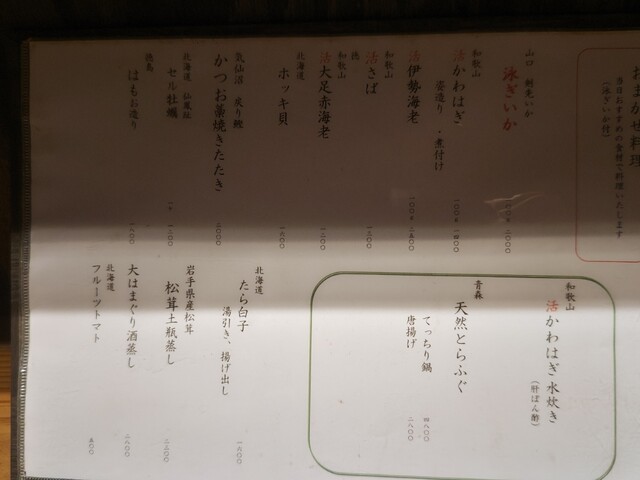 おまかせ料理
当日おすすめの食材で料理いたします
（泳ぎいか付）
山口 剣先いか
泳ぎいか
二〇〇〇
和歌山
活かわはぎ
姿造り ・煮付け
一〇〇g 一四〇〇
活伊勢海老
一〇〇g 二五〇〇
和歌山
活さば
徳
一三〇〇
和歌山
活大足赤海老
一二〇〇
北海道
ホッキ貝
一六〇〇
気仙沼 炙り鰹
かつお藁焼きたたき
二〇〇〇
北海道 仙鳳趾
セル牡蠣
一二〇〇
徳島
はもお造り
一八〇〇
和歌山
活かわはぎ水炊き
（肝ぽん酢）
青森
天然とらふぐ
てっちり鍋
四八〇〇
唐揚げ
二八〇〇
北海道
たら白子
湯引き、揚げ出し
一六〇〇
岩手県産松茸
松茸土瓶蒸し
二三〇〇
大はまぐり酒蒸し
二八〇〇
北海道
フルーツトマト
五〇〇